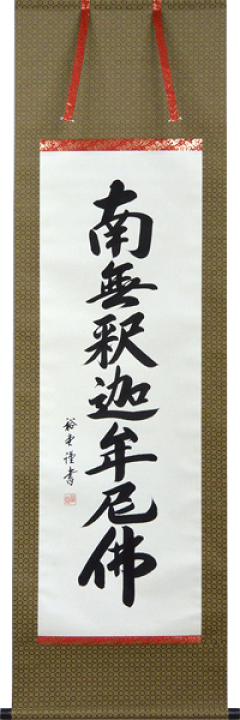 南無釈迦牟尼佛
裕書謹書